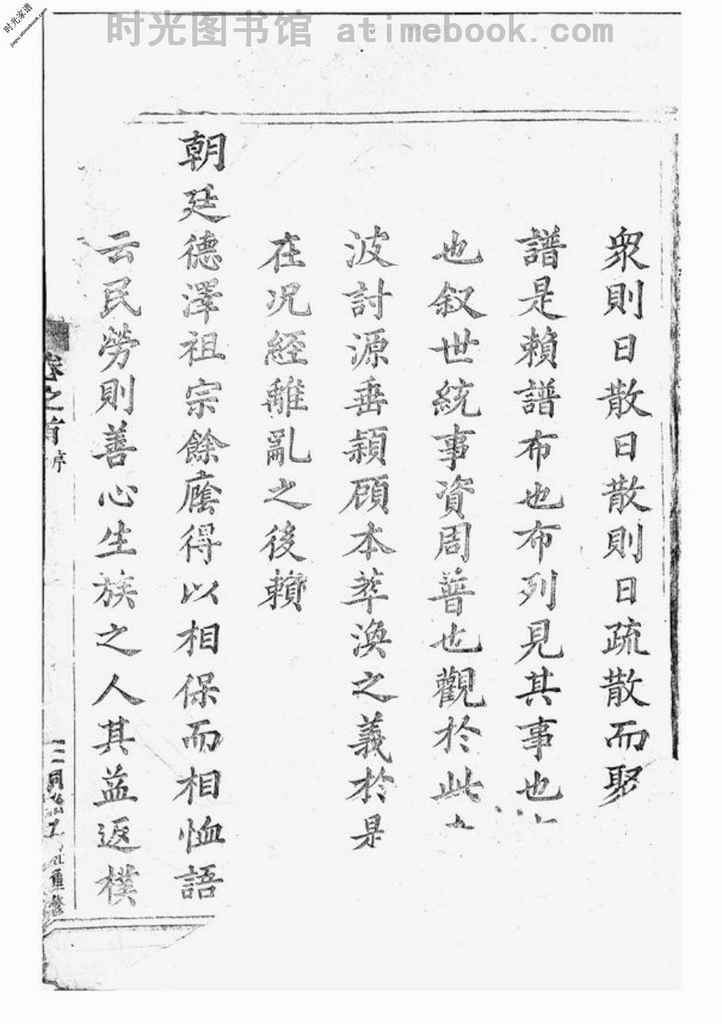 时光图书馆 atimebook.com
时光家谱
www.atimebook.com
衆則日散日散則日疏散而聚
譜是賴譜布也布列見其事也
也叙世統事資周普也觀於此
波討源垂穎顧本萃渙之義於是
在况經離亂之後賴
朝廷德澤祖宗餘廕得以相保而相恤語
云民勞則善心生族之人其益返樸
卷之首 序